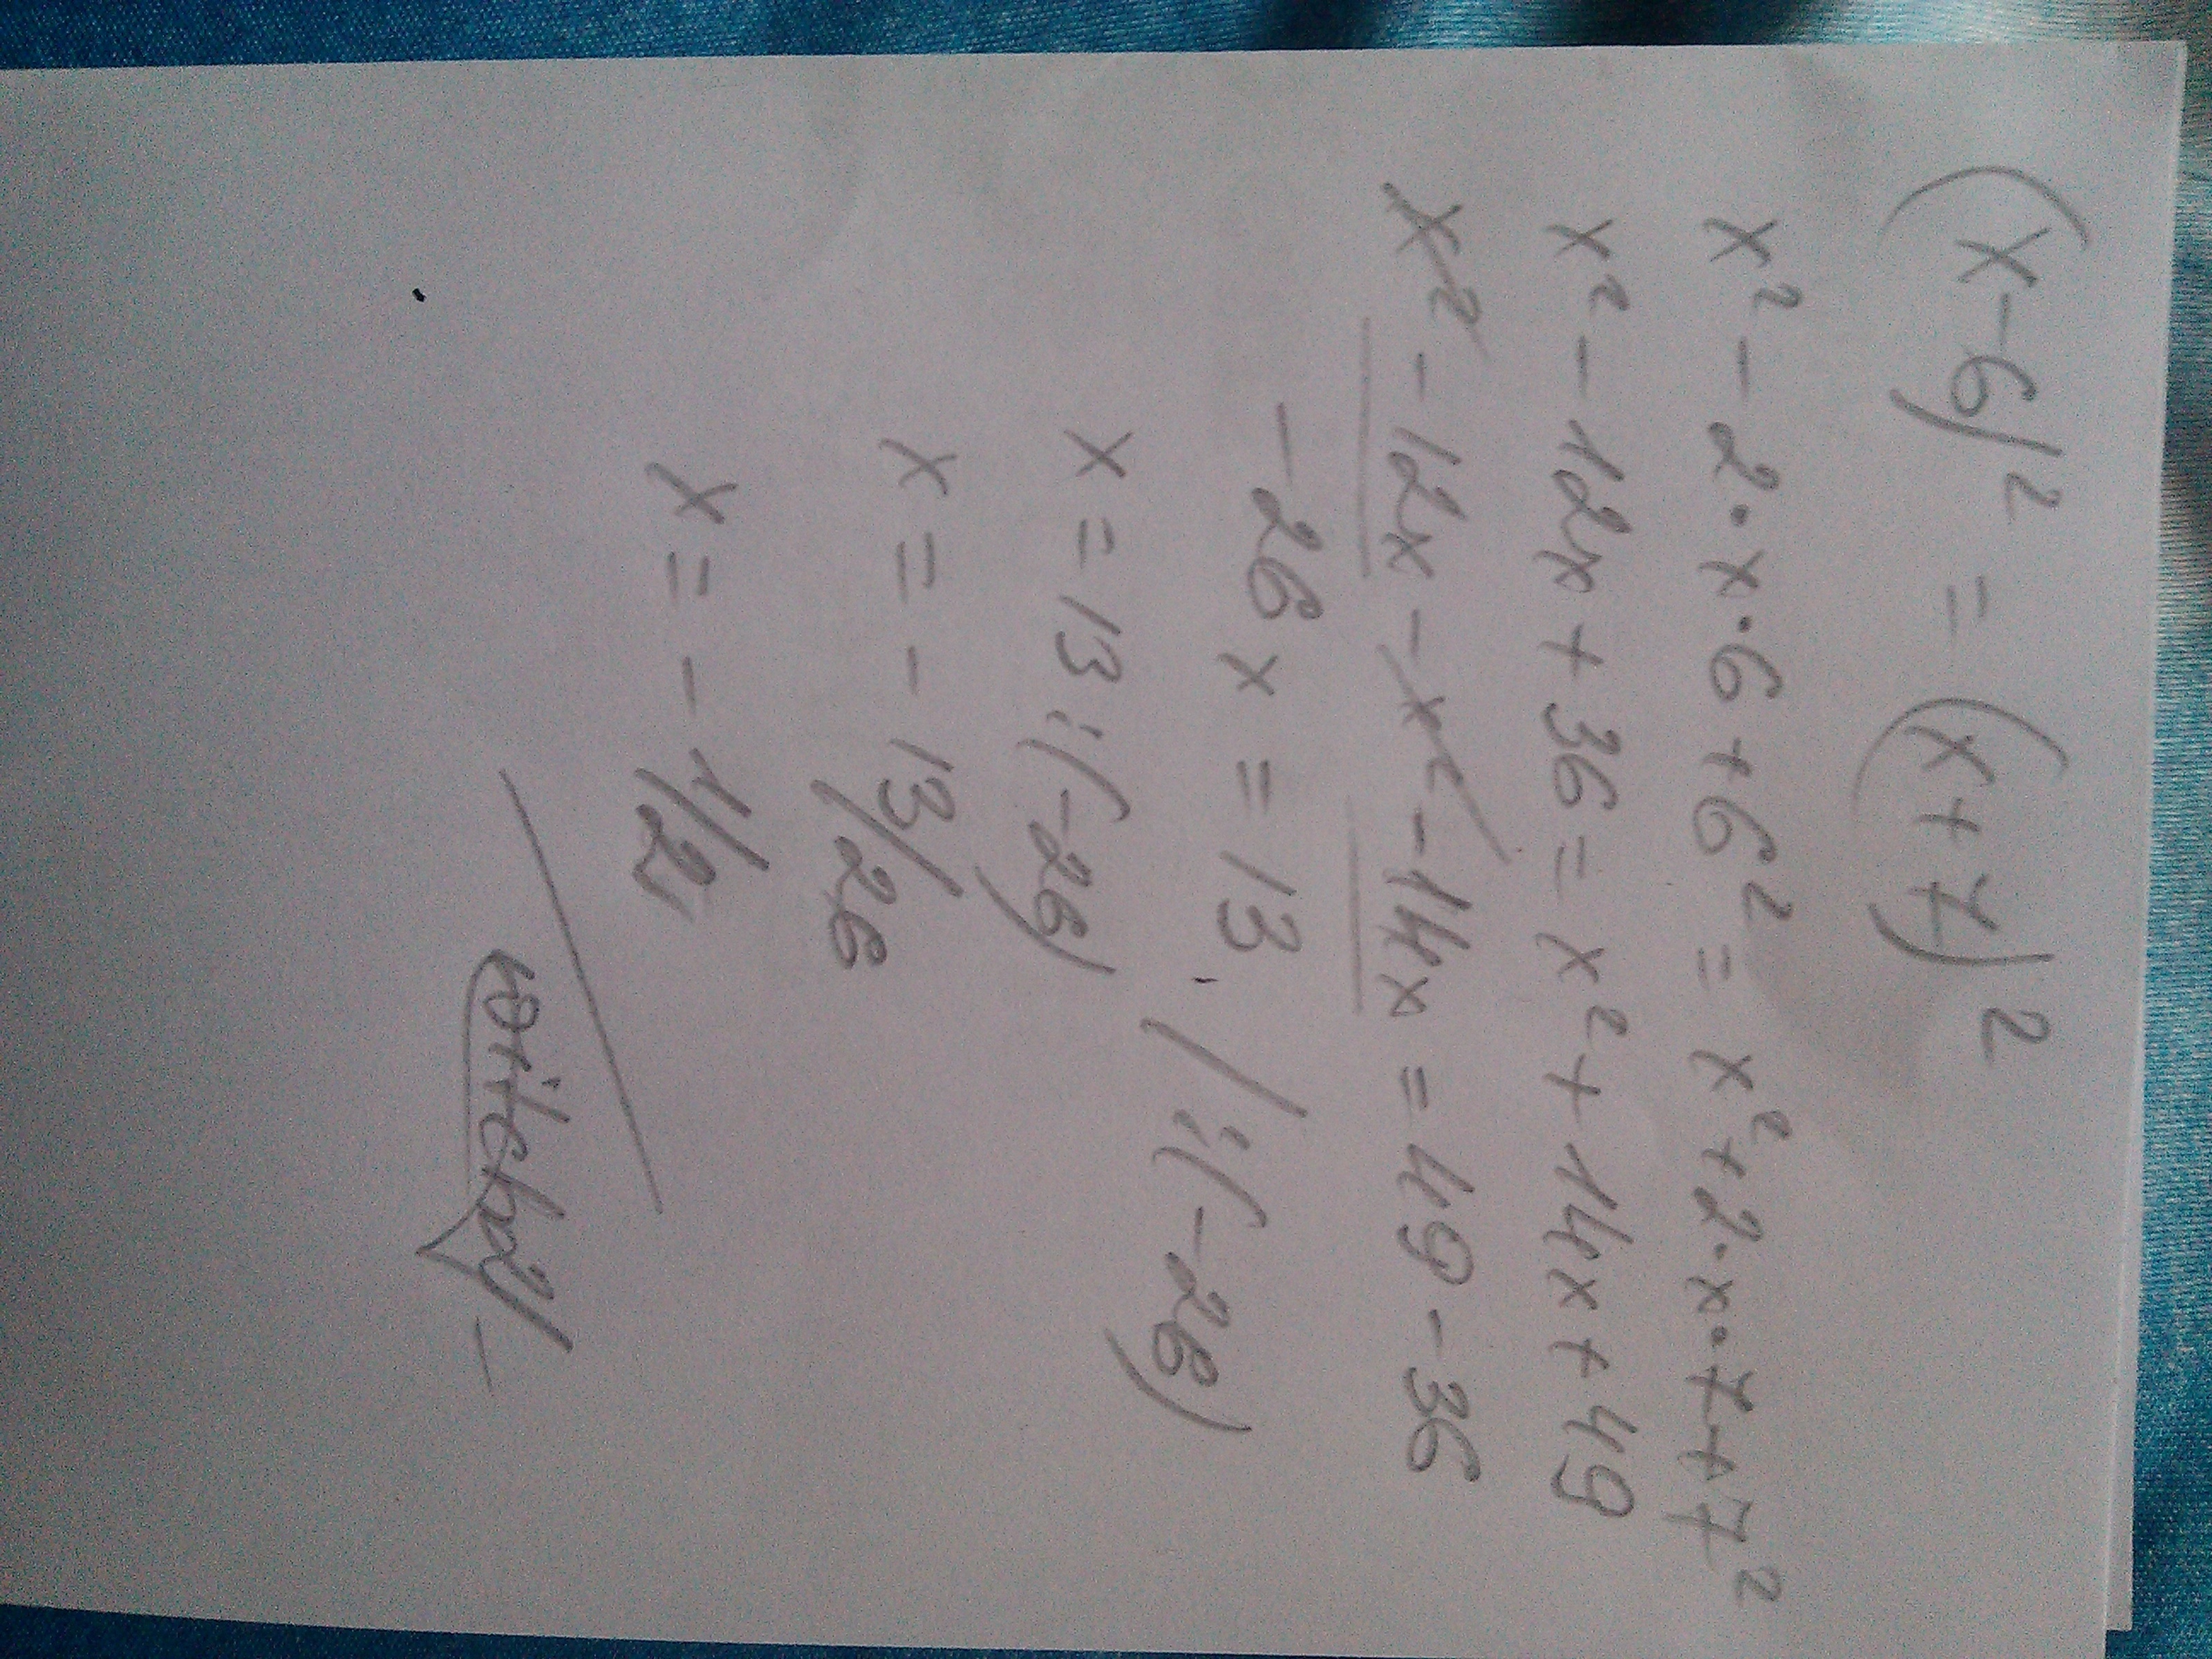 (x-6)² = (x+7)²
x² - 2·x·6+6² = x²+2·x·7+7²
x² - 12x + 36 = x² + 14x + 49
x² - 12x - x² - 14x = 49 - 36
-26x = 13 / :(-26)
x = 13 : (-26)
x = - 13/26
x = - 1/2